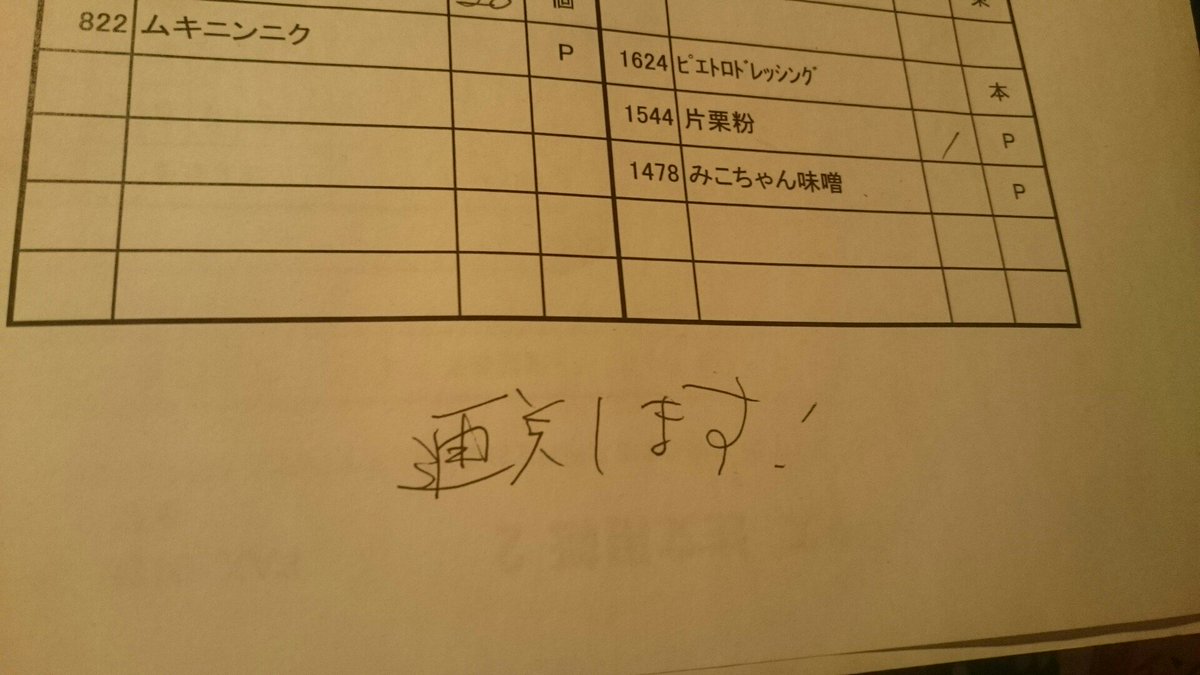 個
822 ムキニンニク P
1624 ﾋﾟｴﾄﾛﾄﾞﾚｯｼﾝｸﾞ 本
1544 片栗粉 / P
1478 みこちゃん味噌 P
します!